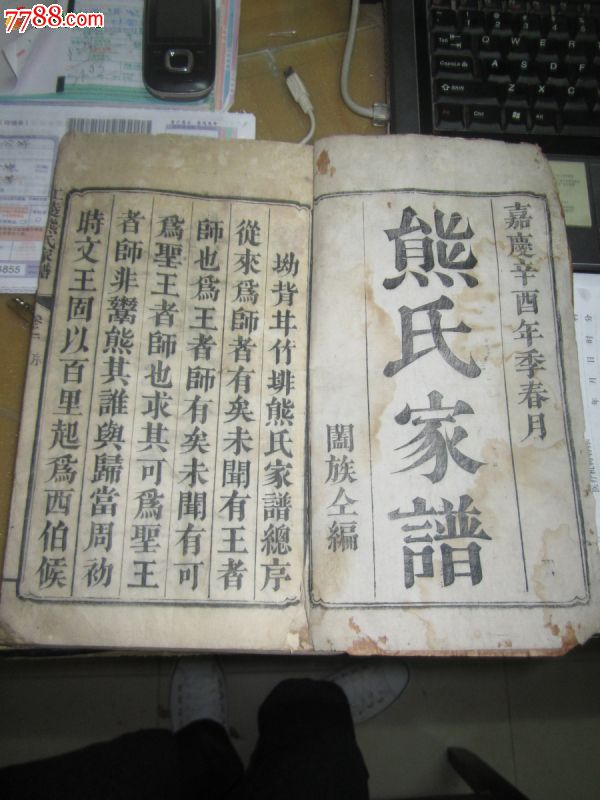 7788.com
嘉慶辛酉年季春月
熊氏家譜
闔族仝編
坳背竹排熊氏家譜總序
從來爲師者有矣未聞有王者
師也爲王者師有矣未聞有可
爲聖王者師也求其可爲聖王
者師非鬻熊其誰與歸當周初
時文王固以百里起爲西伯候
熊氏家譜
序
6855